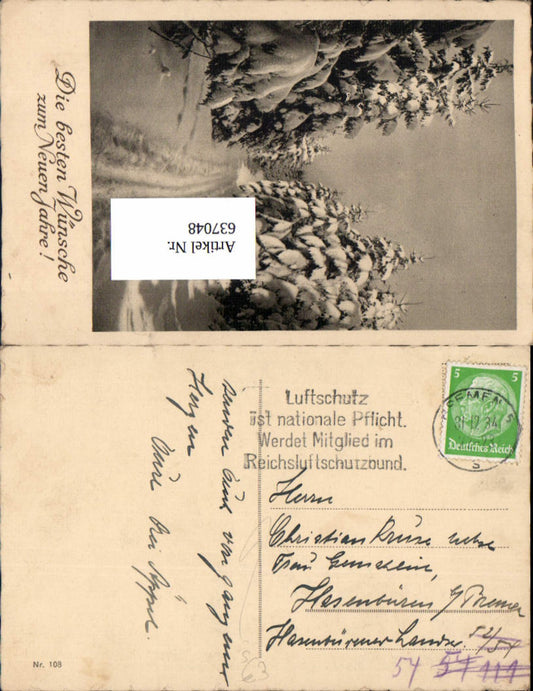 Die besten Wünsche
zum Neuen Jahre!
Artikel Nr.
637048
Luftschutz
ist nationale Pflicht.
Werdet Mitglied im
Reichsluftschutzbund.
BREMEN 5
31.12.34
s
5 5
Deutsches Reich
senden Euch von ganzem
Herzen
Herrn
Christian Kruse nebst
Frau Gemahlin,
Hasenbüren b/Bremen
Hasenbürener Landstr. 52/54
54 54 111
Nr. 108